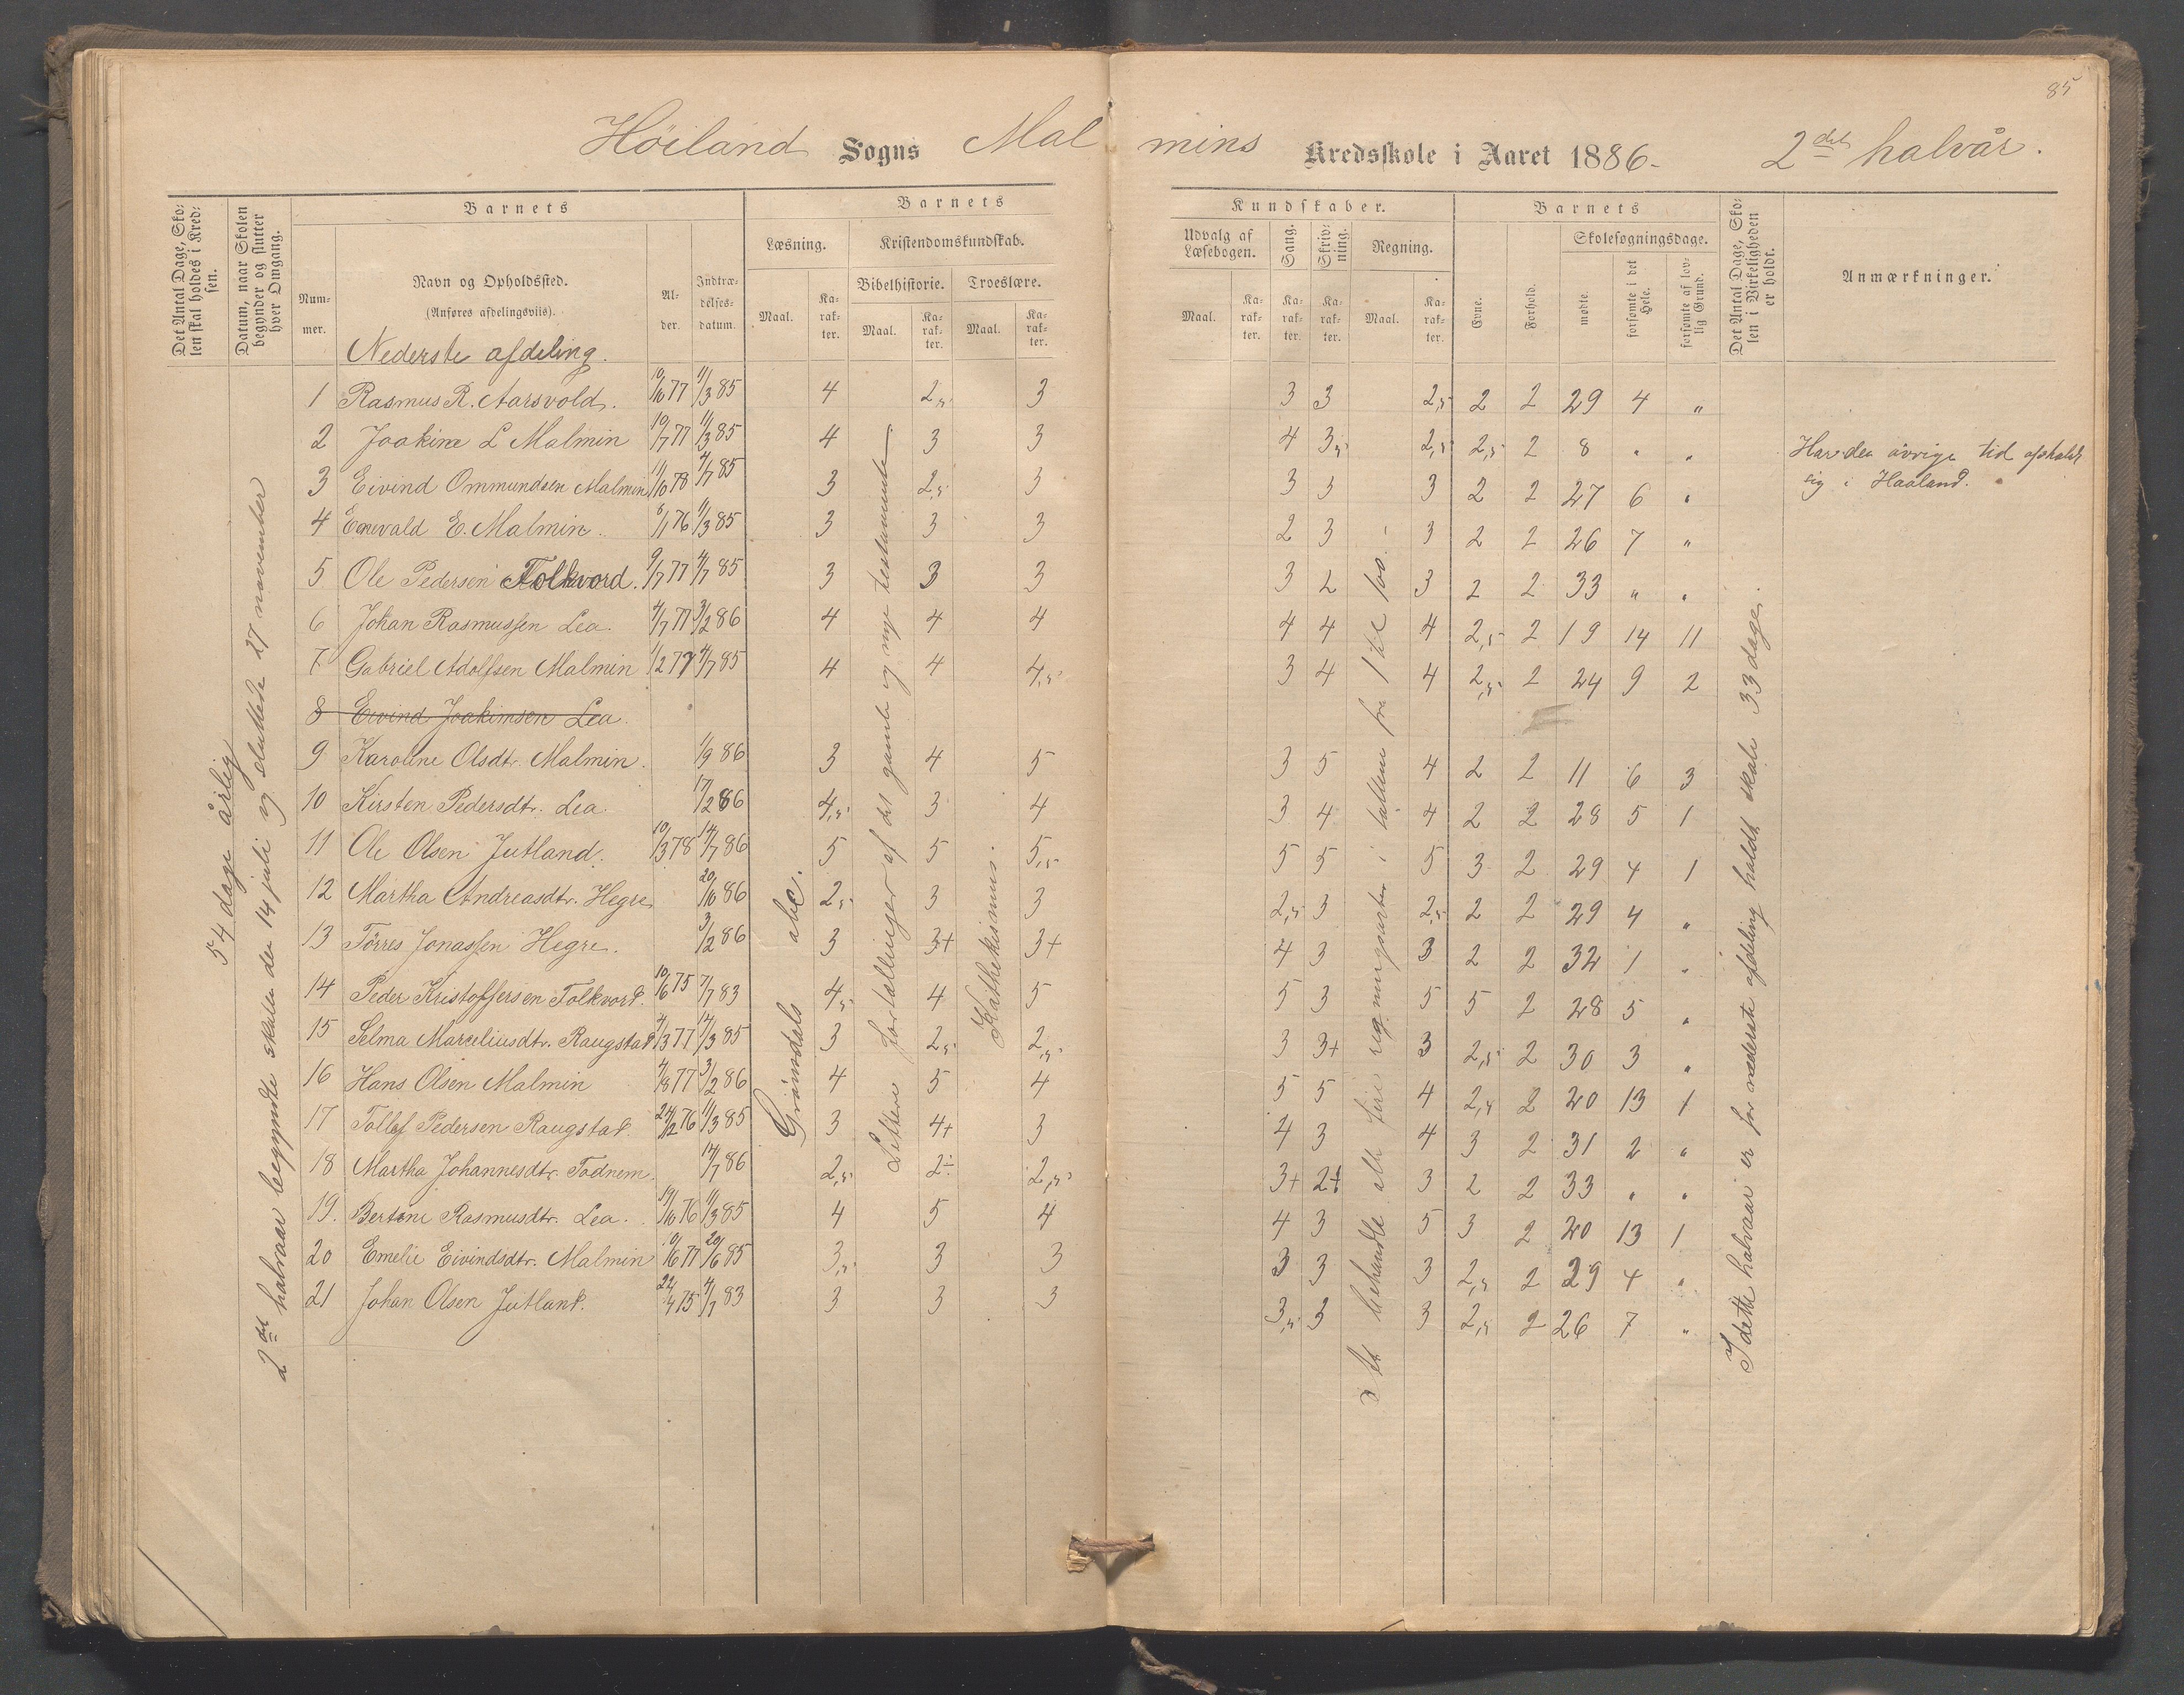 85
Höiland Sogns Malmins Kredsskole i Aaret 1886 - 2det halvår.
Det Antal Dage, Skolen skal holdes i Kredsen.
Datum, naar Skolen begynder og slutter hver Omgang.
Barnets
Nummer.
Navn og Opholdssted.
(Anføres afdelingsviis).
Alder.
Indtrædelsesdatum.
Barnets
Læsning.
Kristendomskundskab.
Bibelhistorie. Troeslære.
Maal. Karakter. Maal. Karakter. Maal. Karakter.
Kundskaber.
Udvalg af Læsebogen. Sang. Skrivning. Regning.
Maal. Karakter. Karakter. Karakter. Maal. Karakter.
Barnets
Evne. Forhold.
Skolesøgningsdage.
mødte. forsømte i det Hele. forsømte af lovlig Grund.
Det Antal Dage, Skolen i Virkeligheden er holdt.
Anmærkninger.
Nederste afdeling.
1 Rasmus R. Aarsvold. 10/10 77 11/3 85 4 2,5 3 3 3 2,5 2 2 29 4 "
2 Joakim L Malmin 10/7 77 11/3 85 4 3 3 4 3,5 2,5 2,5 2 8 " " Har den övrige tid opholdt
3 Eivind Ommundsen Malmin 11/10 78 4/7 85 3 2,5 3 3 3 3 2 2 27 6 " sig i Haaland.
4 Enevald E. Malmin. 6/1 76 11/3 85 3 3 3 2 3 3 2 2 26 7 "
5 Ole Pedersen Folkvord. 9/7 77 4/7 85 3 3 3 3 2 3 2 2 33 " "
6 Johan Rasmussen Lea. 4/7 77 3/2 86 4 4 4 4 4 4 2,5 2 19 14 11
7 Gabriel Adolfsen Malmin 1/2 77 4/7 85 4 4 4,5 3 4 4 2,5 2 24 9 2
8 Eivind Joakimsen Lea.
9 Karoline Olsdtr. Malmin. 1/9 86 3 4 5 3 5 4 2 2 11 6 3
10 Kirsten Pedersdtr. Lea. 17/2 86 4,5 3 4 3 4 4 2 2 28 5 1
11 Ole Olsen Jutland. 10/3 78 14/7 86 5 5 5,5 5 5 5 3 2 29 4 1
12 Martha Andreasdtr. Hegre 20/10 86 2,5 3 3 2,5 3 2,5 2 2 29 4 "
13 Törres Jonassen Hegre. 3/2 86 3 3+ 3+ 4 3 3 2 2 32 1 "
14 Peder Kristoffersen Folkvord. 10/6 75 7/7 83 4,5 4 5 5 3 5 5 2 28 5 "
15 Selma Marceliusdtr. Raugstad 4/3 77 14/3 85 3 2,5 2,5 3 3+ 3 2,5 2 30 3 "
16 Hans Olsen Malmin 4/8 77 3/2 86 4 5 4 5 5 4 2,5 2 20 13 1
17 Tollef Pedersen Raugstad. 24/12 76 11/3 85 3 4+ 3 4 3 4 3 2 31 2 "
18 Martha Johannesdtr. Todnem. 14/7 86 2,5 2÷ 2,5 3+ 2+ 3 2 2 33 " "
19. Bertine Rasmusdtr. Lea. 19/10 76 11/3 85 4 5 4 4 3 5 3 2 20 13 1
20 Emelie Eivindsdtr. Malmin 10/6 77 20/6 85 3,5 3 3 3 3 3 2,5 2 29 4 "
21 Johan Olsen Jutland. 22/4 75 4/7 83 3 3 3 3,5 3 3 2,5 2 26 7 "
54 dage årlig
2det halvaar begyndte skolen den 14 juli og sluttede 27 november
abc.
Lettere fortællinger af det gamle og nye testamente
Kathekismus.
behandle alle fire regningsarter i tallene fra 1 til 100.
I dette halvaar er for nederste afdeling holdt skole 33 dage.